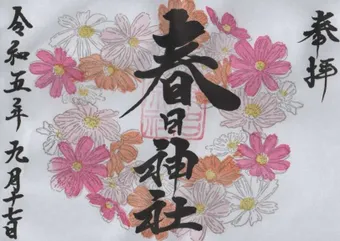 奉拝
春日神社
令和五年 九月十七日